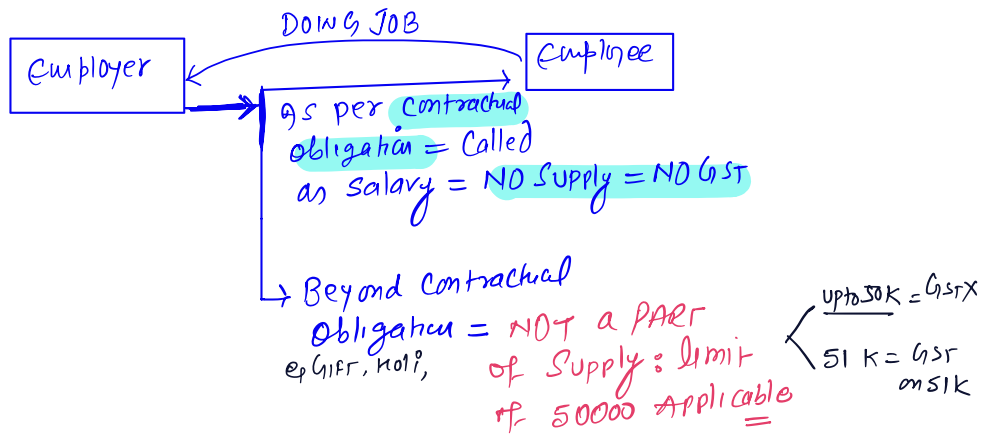 DOING JOB
Employer
Employee
As per contractual
obligation = Called
as salary = NO Supply = NO GST
Beyond contractual
obligation = NOT a PART
eg GIFT, Holi,
of Supply : limit
of 50000 Applicable
upto 50K = GST X
51 K = GST
on 51K